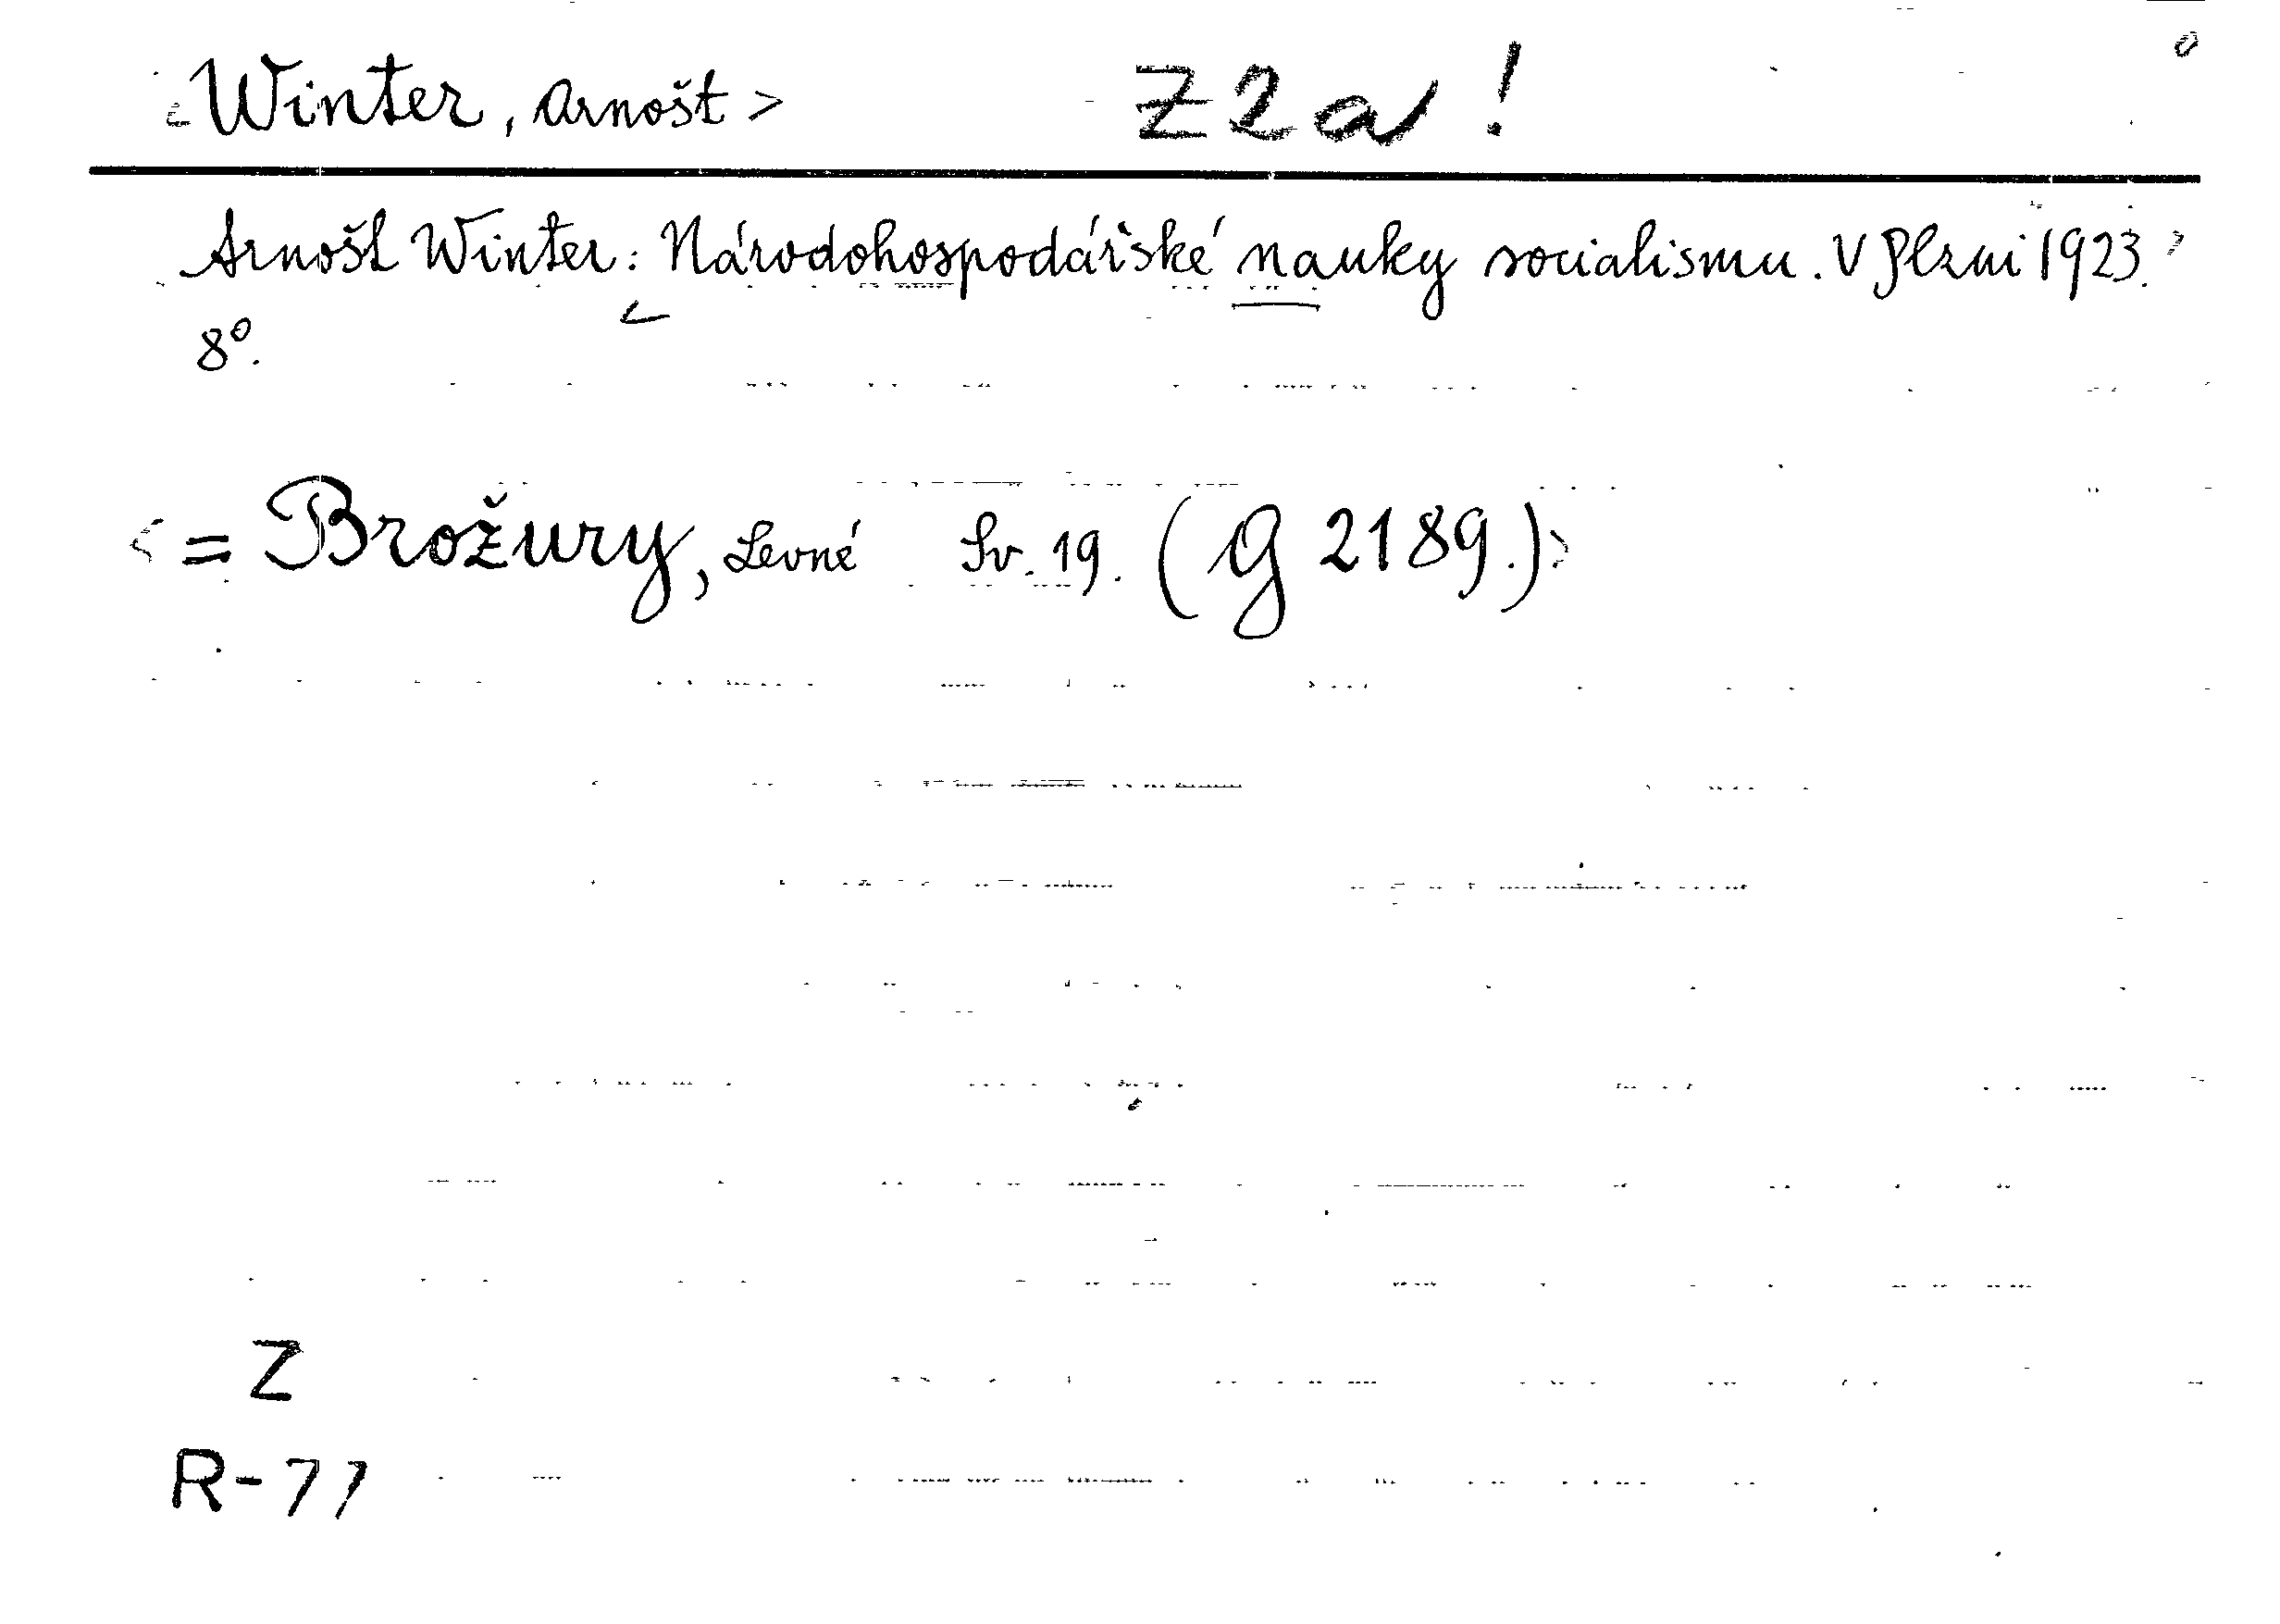 <Winter, Arnošt> Z2a!
Arnošt Winter: Národohospodářské nauky socialismu. V Plzni 1923.>
8°.
<= Brožury, Levné Sv. 19. (G 2189.)>
Z
R-77